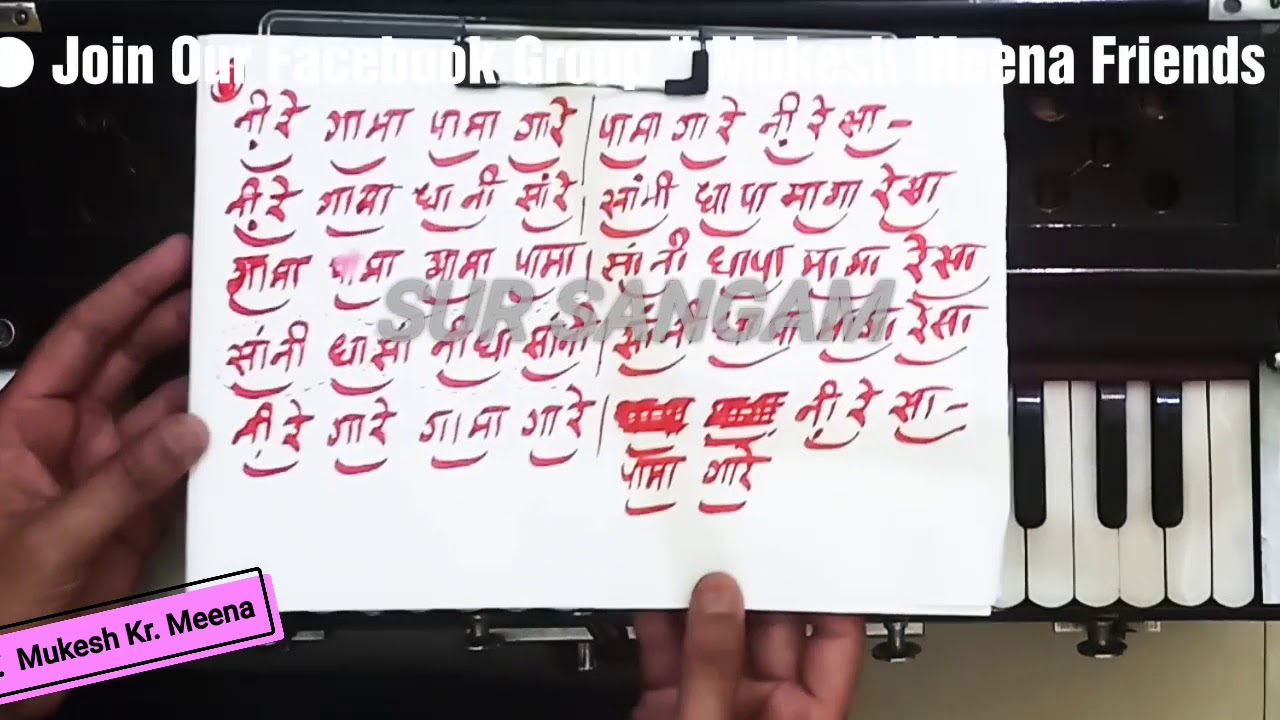 ● Join Our Facebook Group " Mukesh Meena Friends
नी़ रे गामा पामा गारे | पामा गारे नी़ रे सा -
नी़ रे गामा धानी सांरे | सांनी धापा मागा रेसा
गामा पामा गामा पामा | सांनी धापा मागा रेसा
SUR SANGAM
सांनी धासां नीधा सांनी | सांनी धापा मागा रेसा
नी़ रे गारे गामा गारे | नी़ रे सा -
पामा गारे
Mukesh Kr. Meena